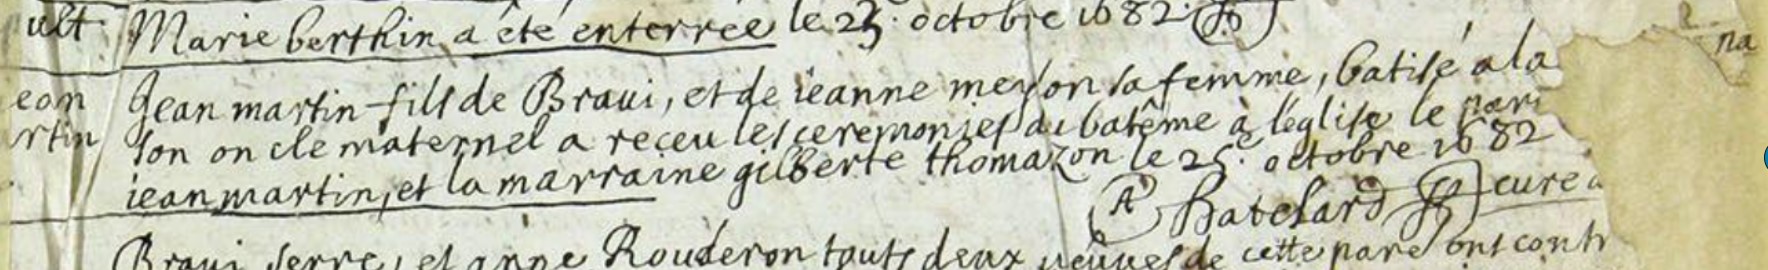 ult Marie berthin a été enterrée le 23. octobre 1682.
ean Jean martin fils de Braui, et de ieanne meson sa femme, batisé a la
rtin son oncle maternel a receu les ceremonies du batême à l'église le
iean martin, et la marraine gilberte thomazon le 25e octobre 1682
Batelard curé
Braui serre, et anne Rouderon touts deux veuves de cette pare ont cont